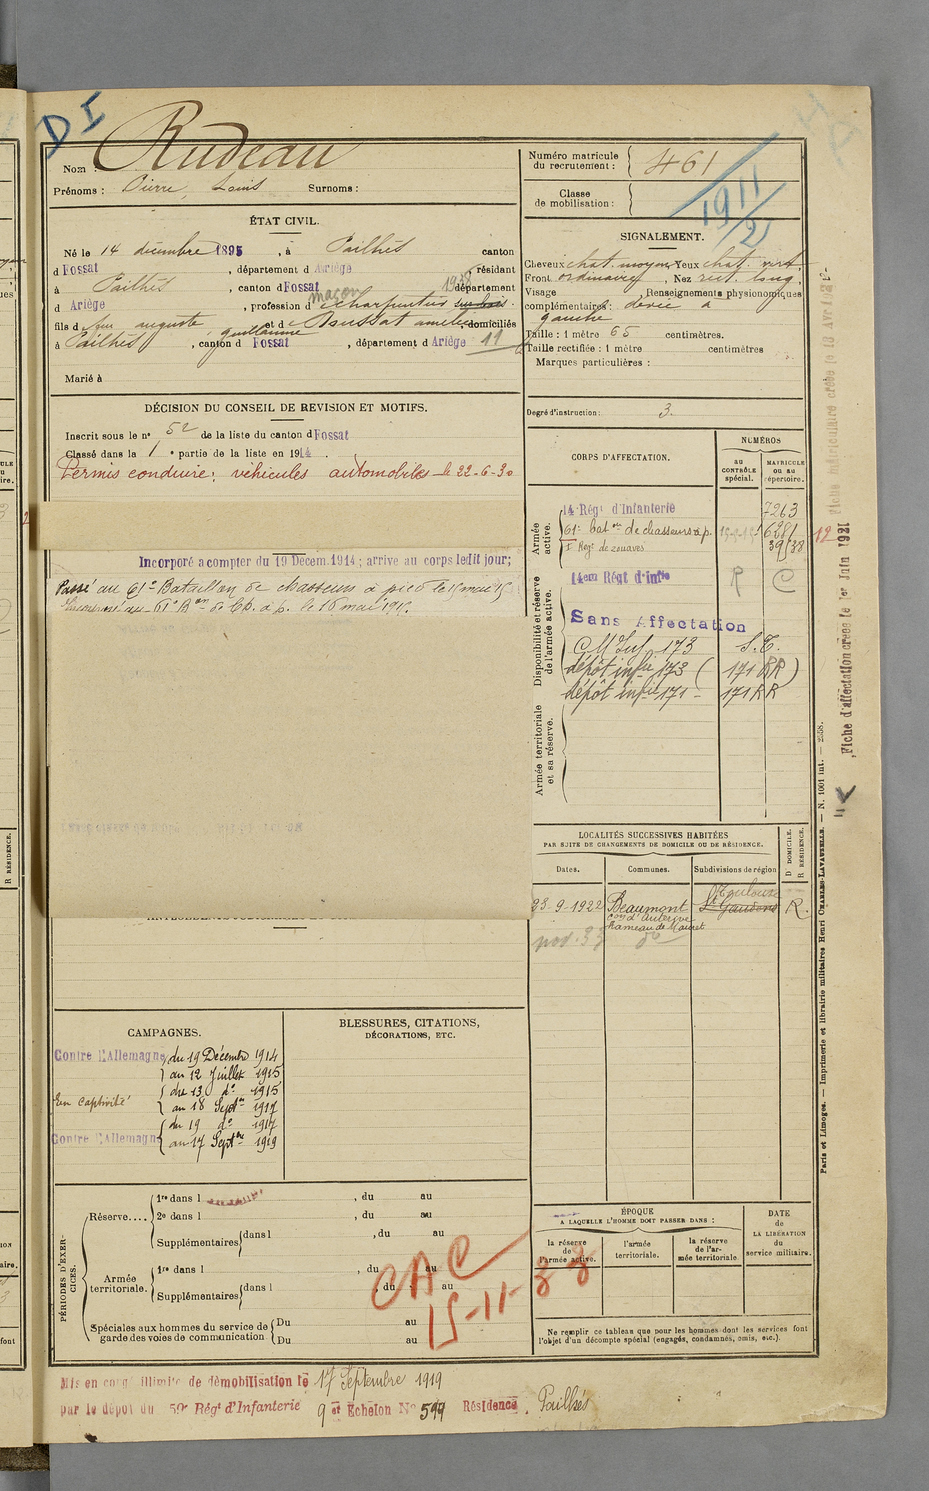 D I
Nom : Rudeau
Prénoms : Pierre Louis Surnoms :
Numéro matricule du recrutement : 461
Classe de mobilisation :
1911/2
ÉTAT CIVIL.
Né le 14 décembre 1895, à Pailhès canton
d Fossat, département d Ariège, résidant
à Pailhès, canton d Fossat département
d Ariège, profession d maçon charpentier sur bois.
fils d feu auguste guillaume et d Soussat amélie domiciliés
à Pailhès, canton d Fossat, département d Ariège 11
Marié à
SIGNALEMENT.
Cheveux chat. moyen Yeux chat. vert.
Front ordinaire, Nez rect. long,
Visage Renseignements physionomiques
complémentaires :
gauche
Taille : 1 mètre 65 centimètres.
Taille rectifiée : 1 mètre centimètres
Marques particulières :
Degré d'instruction : 3.
DÉCISION DU CONSEIL DE REVISION ET MOTIFS.
Inscrit sous le n° 52 de la liste du canton d Fossat
Classé dans la 1e partie de la liste en 1914.
Permis conduire : véhicules automobiles le 22-6-30
Incorporé a compter du 19 Décem. 1914 ; arrive au corps ledit jour;
Passé au 61e Bataillon de chasseurs à pied le 15 mai 15
au 61e Bon de Ch. à p. le 16 mai 1915.
CORPS D'AFFECTATION.
NUMÉROS
au CONTRÔLE spécial.
MATRICULE ou au répertoire.
Armée active.
14 Régt d'Infanterie 7263
61e baton de chasseurs à p. 6281
1er Régt de zouaves 39138
Disponibilité et réserve de l'armée active.
14em Régt d'infie R C
Sans Affectation
C M Inf 173 S.T.
dépôt infie 173 ( 171 RR )
dépôt infie 171 - 171 RR
Armée territoriale et sa réserve.
LOCALITÉS SUCCESSIVES HABITÉES
PAR SUITE DE CHANGEMENTS DE DOMICILE OU DE RÉSIDENCE.
Dates. Communes. Subdivisions de région D DOMICILE. R RÉSIDENCE.
23-9-1922 Beaumont Toulouse St Gaudens R.
Hameau de Mauret
nov. 33 do
CAMPAGNES.
Contre l'Allemagne du 19 Décembre 1914
au 12 Juillet 1915
En captivité du 13 do 1915
au 18 Septre 1917
Contre l'Allemagne du 19 do 1917
au 17 Septbre 1919
BLESSURES, CITATIONS,
DÉCORATIONS, ETC.
PÉRIODES D'EXERCICES.
Réserve.... 1re dans l , du au
2e dans l , du au
Supplémentaires dans l , du au
Armée territoriale. 1re dans l , du au
Supplémentaires dans l , du au
Spéciales aux hommes du service de garde des voies de communication Du au
Du au
CAC
15-11-38
ÉPOQUE
A LAQUELLE L'HOMME DOIT PASSER DANS :
la réserve de l'armée active. l'armée territoriale. la réserve de l'armée territoriale.
DATE de LA LIBÉRATION du service militaire.
Ne remplir ce tableau que pour les hommes dont les services font
l'objet d'un décompte spécial (engagés, condamnés, omis, etc.).
Mis en congé illimité de démobilisation le 17 Septembre 1919
par le dépôt du 59e Régt d'Infanterie 9 et Echelon N° 599 Résidence Pailhès
Paris et Limoges. — Imprimerie et librairie militaires Henri CHARLES-LAVAUZELLE. — N. 1001 int. — 2558.
Fiche d'affectation créée le 1er Juin 1921